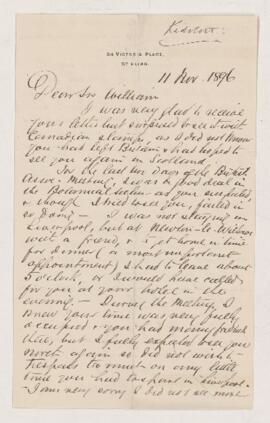 Kidston:
34 VICTORIA PLACE,
STIRLING.
11 Nov. 1896
Dear Sir William
I was very glad to receive
your letter but surprised to see it with
Canadian stamp, as I did not know
you had left Britain & had hoped to
see you again in Scotland.
For the last two days of the British
Assoc. Meeting, I was a good deal in
the Botanical Section – as you suggested
& though I tried to see you, failed in
so doing – I was not staying in
Liverpool, but at Newton-le-Willows
with a friend, & to get home in time
for dinner (a most important
appointment) I had to leave about
5 o'clock, or I would have called
for you at your hotel in the
evening. – During the Meeting I
knew your time was very fully
occupied & you had many friends
there, but I fully expected to see you
North again so did not wish to
trespass too much on any little
time you had to spend in Liverpool.
I am very sorry I did not see more